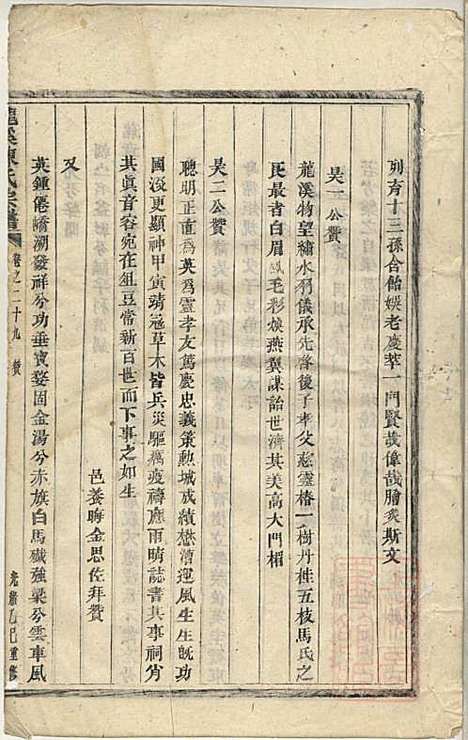 列有十三孫含飴娛老慶萃一門賢哉偉哉膾炙斯文
吴一公贊
龍溪物望繡水羽儀承先啓後子孝父慈靈椿一樹丹桂五枝馬氏之
民最者白眉鳳毛彩煥燕翼謀詒世濟其美高大門楣
吴二公贊
聰明正直為英為靈孝友篤慶忠義策勲城成績懋漕運風生生旣功
國沒更顯神甲寅靖冦草木皆兵災驅癘疫禱應雨晴誌書其事祠肖
其眞音容宛在俎豆常新百世而下事之如生
邑養晦金思佐拜贊
又
英鍾僊嶠湖發祥兮功垂寳婺固金湯兮赤旗白馬殲強梁兮雲車風
龍溪陳氏宗譜
卷之二十九 贊
光緒乙巳重修